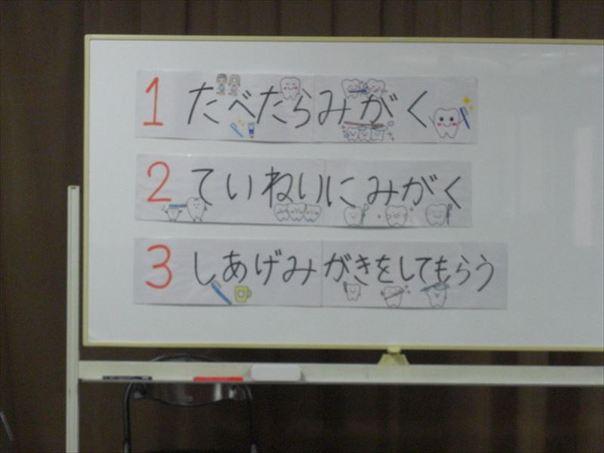 1 たべたらみがく
2 ていねいにみがく
3 しあげみがきをしてもらう